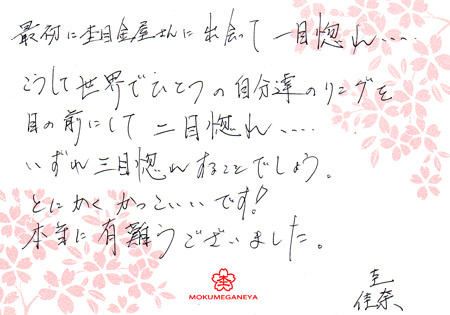 最初に杢目金屋さんに出会って一目惚れ‥‥
こうして世界でひとつの自分達のリングを
目の前にして 二目惚れ‥‥
いずれ三目惚れすることでしょう。
とにかくかっこいいです!
本当に有難うございました。
圭
佳奈
MOKUMEGANEYA